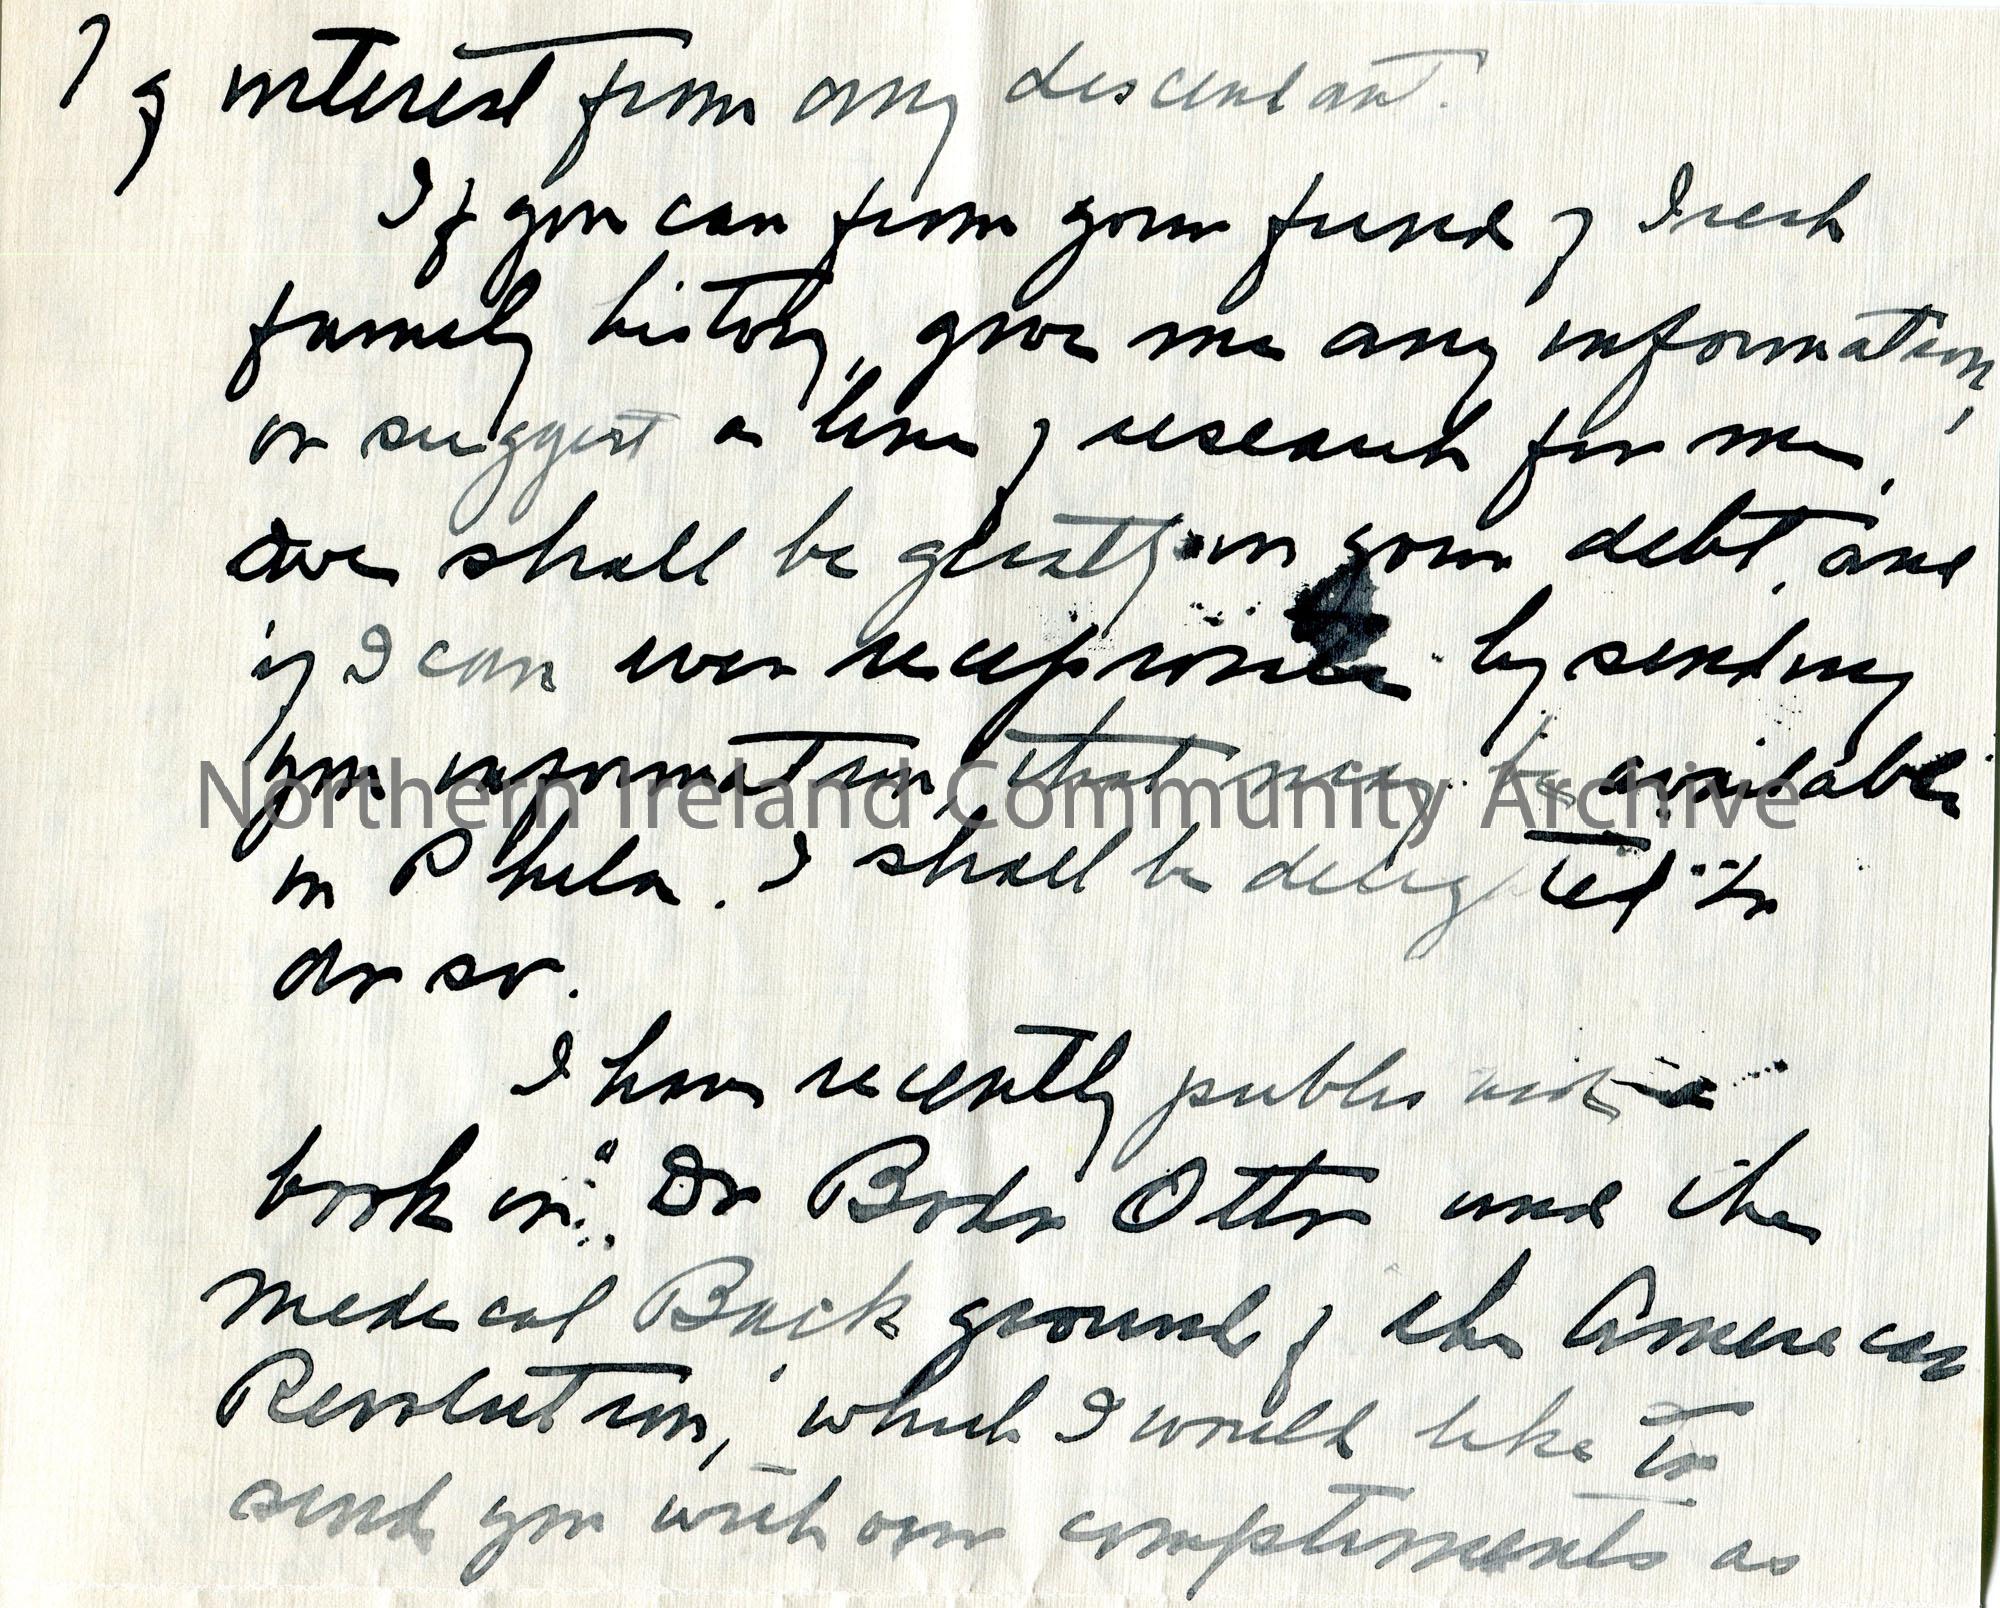 7 of interest from any descendant.
If you can from your fund of Irish
family history, give me any information,
or suggest a line of research for me,
we shall be greatly in your debt, and
if I can ever reciprocate by sending
you information that may be available
in Phila. I shall be delighted to
do so.
I have recently published a
book on "Dr Bodo Otto and the
Medical Back ground of the American
Revolution," which I would like to
send you with our compliments as
Northern Ireland Community Archive